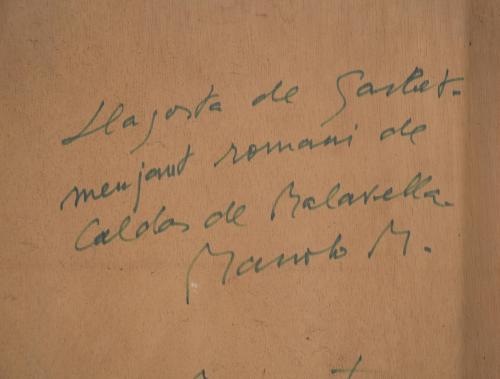 Llagosta de Gasket-
menjant romaní de
Caldas de Malavella-
Manolo M.